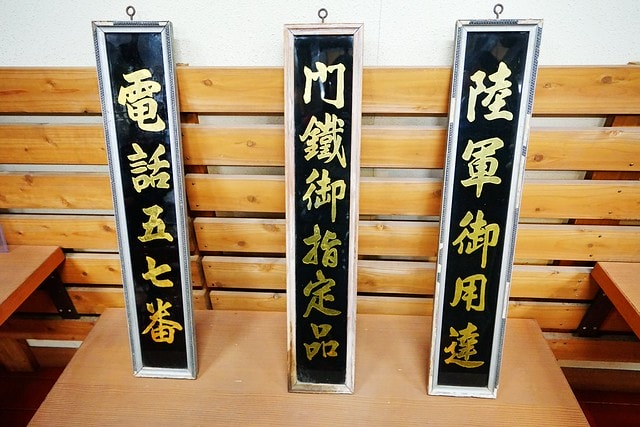 陸軍御用達
門鐵御指定品
電話五七番